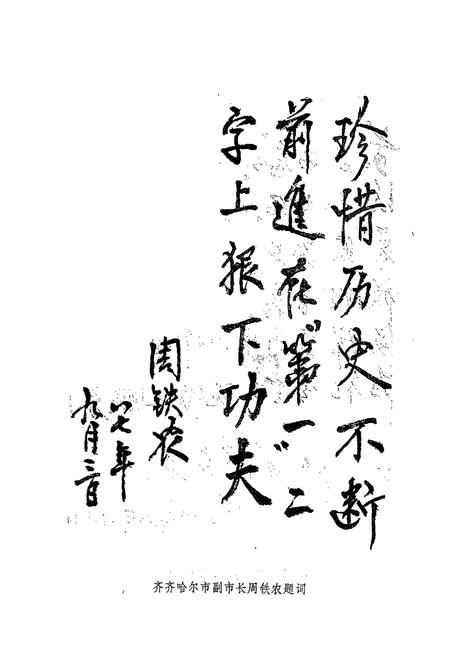 珍惜历史不断
前進在“第一”二
字上狠下功夫
周铁农
八七年
九月三日
齐齐哈尔市副市长周铁农题词